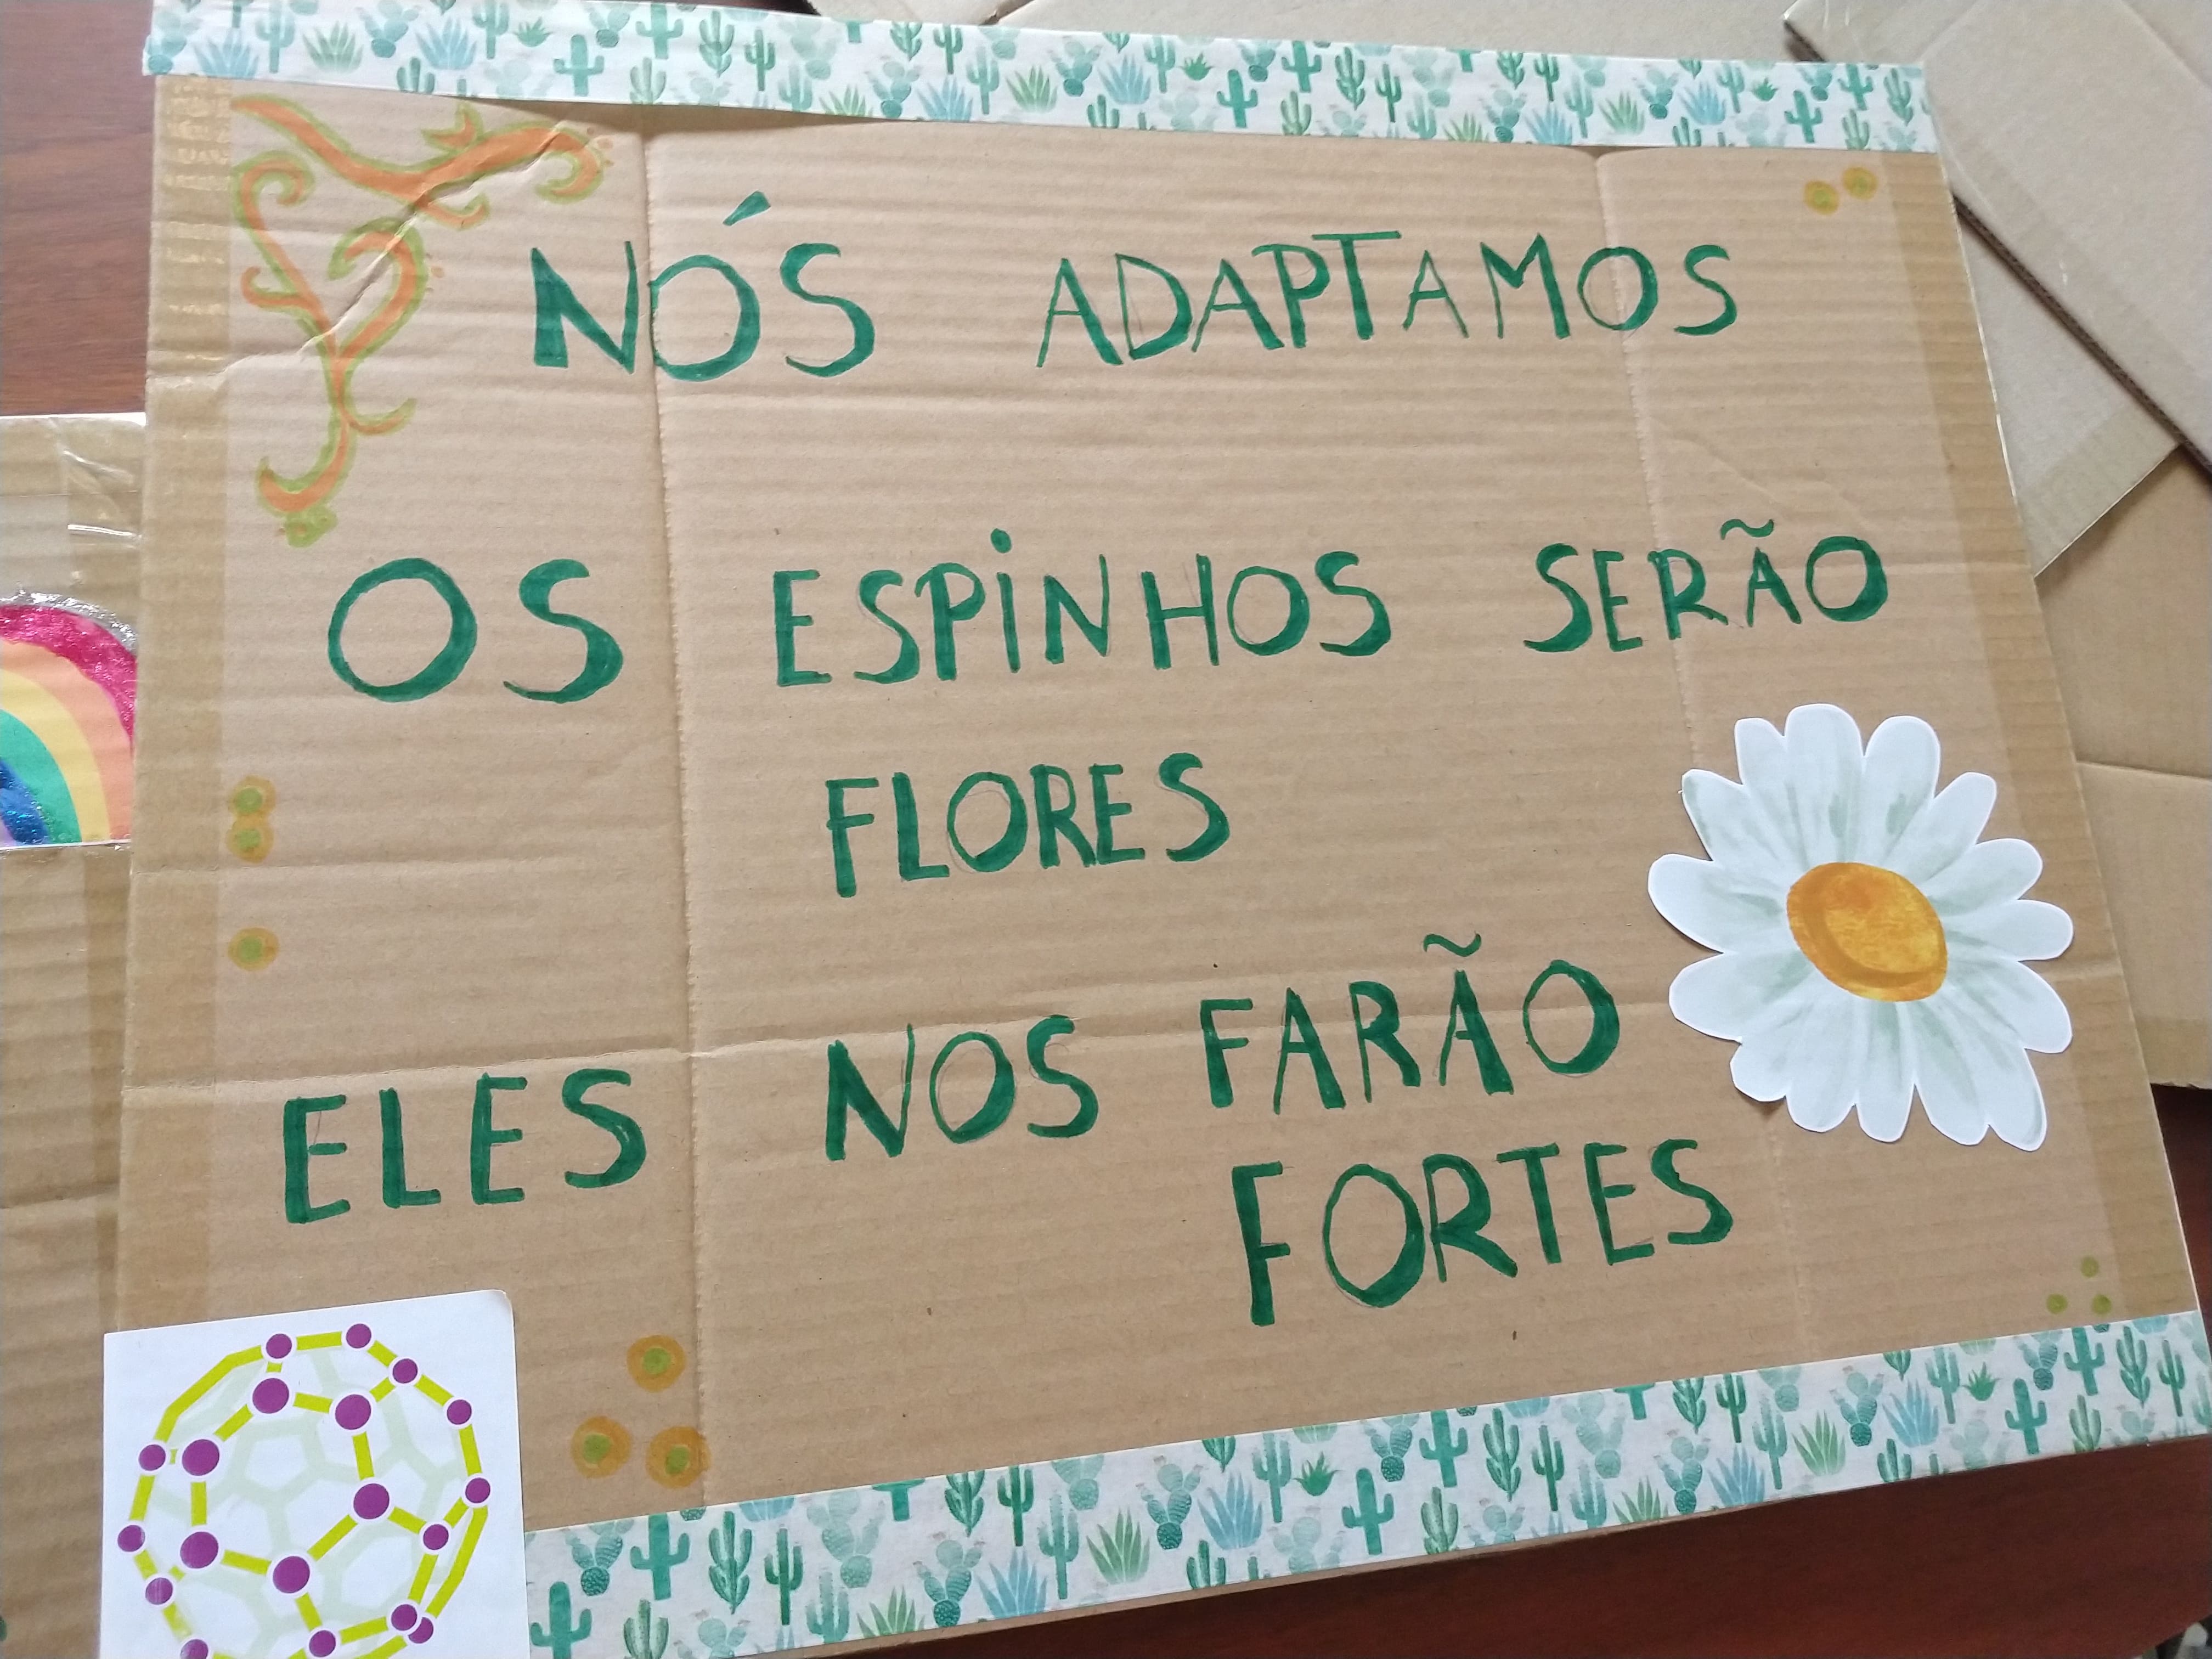 NÓS ADAPTAMOS
OS ESPINHOS SERÃO
FLORES
ELES NOS FARÃO
FORTES